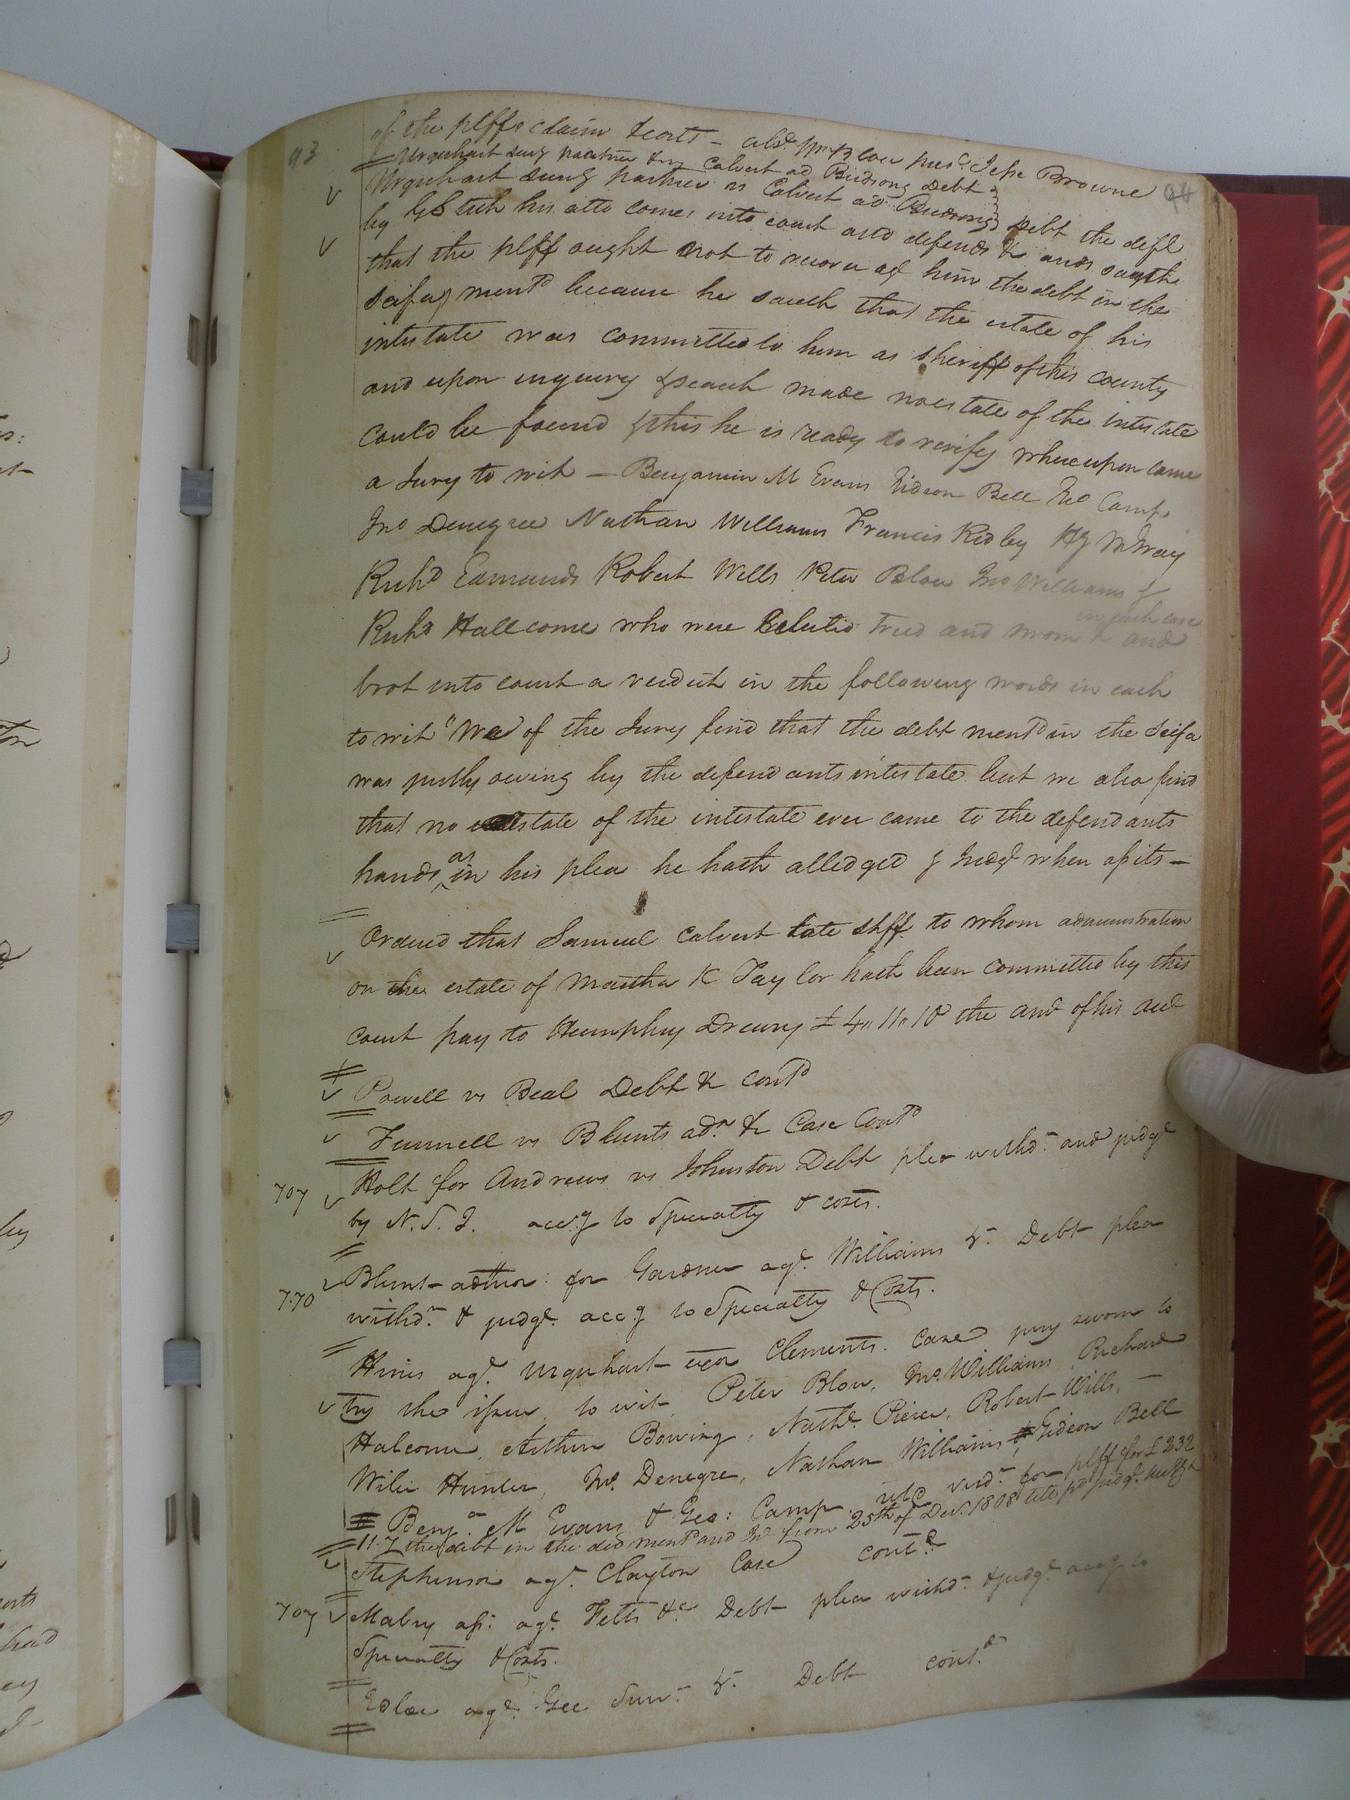 93
of the plffs claim & costs - absd. Mr Blow presd. Jesse Browne 94
Urquhart surg partner &c vs Calvert ad Birdsong Debt
Urquhart surg partner vs Calvert ad Birdsong Debt the deft
by his atto comes into court and defends &c and saith
that the plff ought not to recover agt him the debt in the
scifa mentd because he saith that the estate of his
intestate was committed to him as sheriff of this county
and upon inquiry & search made no estate of the intestate
could be found & this he is ready to verify whereupon came
a Jury to wit — Benjamin M Evans Gideon Bell Geo Camp
Jno Denegree Nathan Williams Francis Ridley
Richd Edmunds Robert Wells Peter Blow Jno Williams &
in each case
Richd Hallcome who were Selected tried and sworn & and
brot into court a verdict in the following words in each
to wit "We of the Jury find that the debt mentd in the Scifa
was justly owing by the defendants intestate but we also find
that no estate of the intestate ever came to the defendants
hands as in his plea he hath alledged & Judgt when assets —
Ordered that Samuel Calvert late shff. to whom administration
on the estate of Martha K Taylor hath been committed by this
court pay to Humphrey Drewry £ 4,, 11,, 10 the amt of his acct
Powell vs Beal Debt & contd
Funnell vs Blunts adr. &c Case Contd
707 Holt for Andrews vs Johnston Debt plea withdn. and judgt
by N. S. J. accg to Specialty & costs.
770 Blunt admor: for Gardner agt. Williams &c. Debt plea
withdn. & judgt. accg to Specialty & Costs.
Hines agt. Urquhart exor Clements. Case jury sworn to
try the issue, to wit, Peter Blow, Jno. Williams, Richard
Halcome, Arthur Bowing, Nathl. Pierce, Robert Wills, —
Wilie Hunter, Jno. Denegre, Nathan Williams, Gideon Bell
Benjan. M Evans & Geo: Camp verdt. for plff for £232
11.7 the debt in the decl mentd and Int from 25th of Decr. 1808 till pd judgt.
Stephenson agt. Clayton Case contd.
707 Mabry ass: agt. Felts &c Debt plea withdn. & judgt accg to
Specialty & Costs.
agt. Gee Sur. &c. Debt contd.